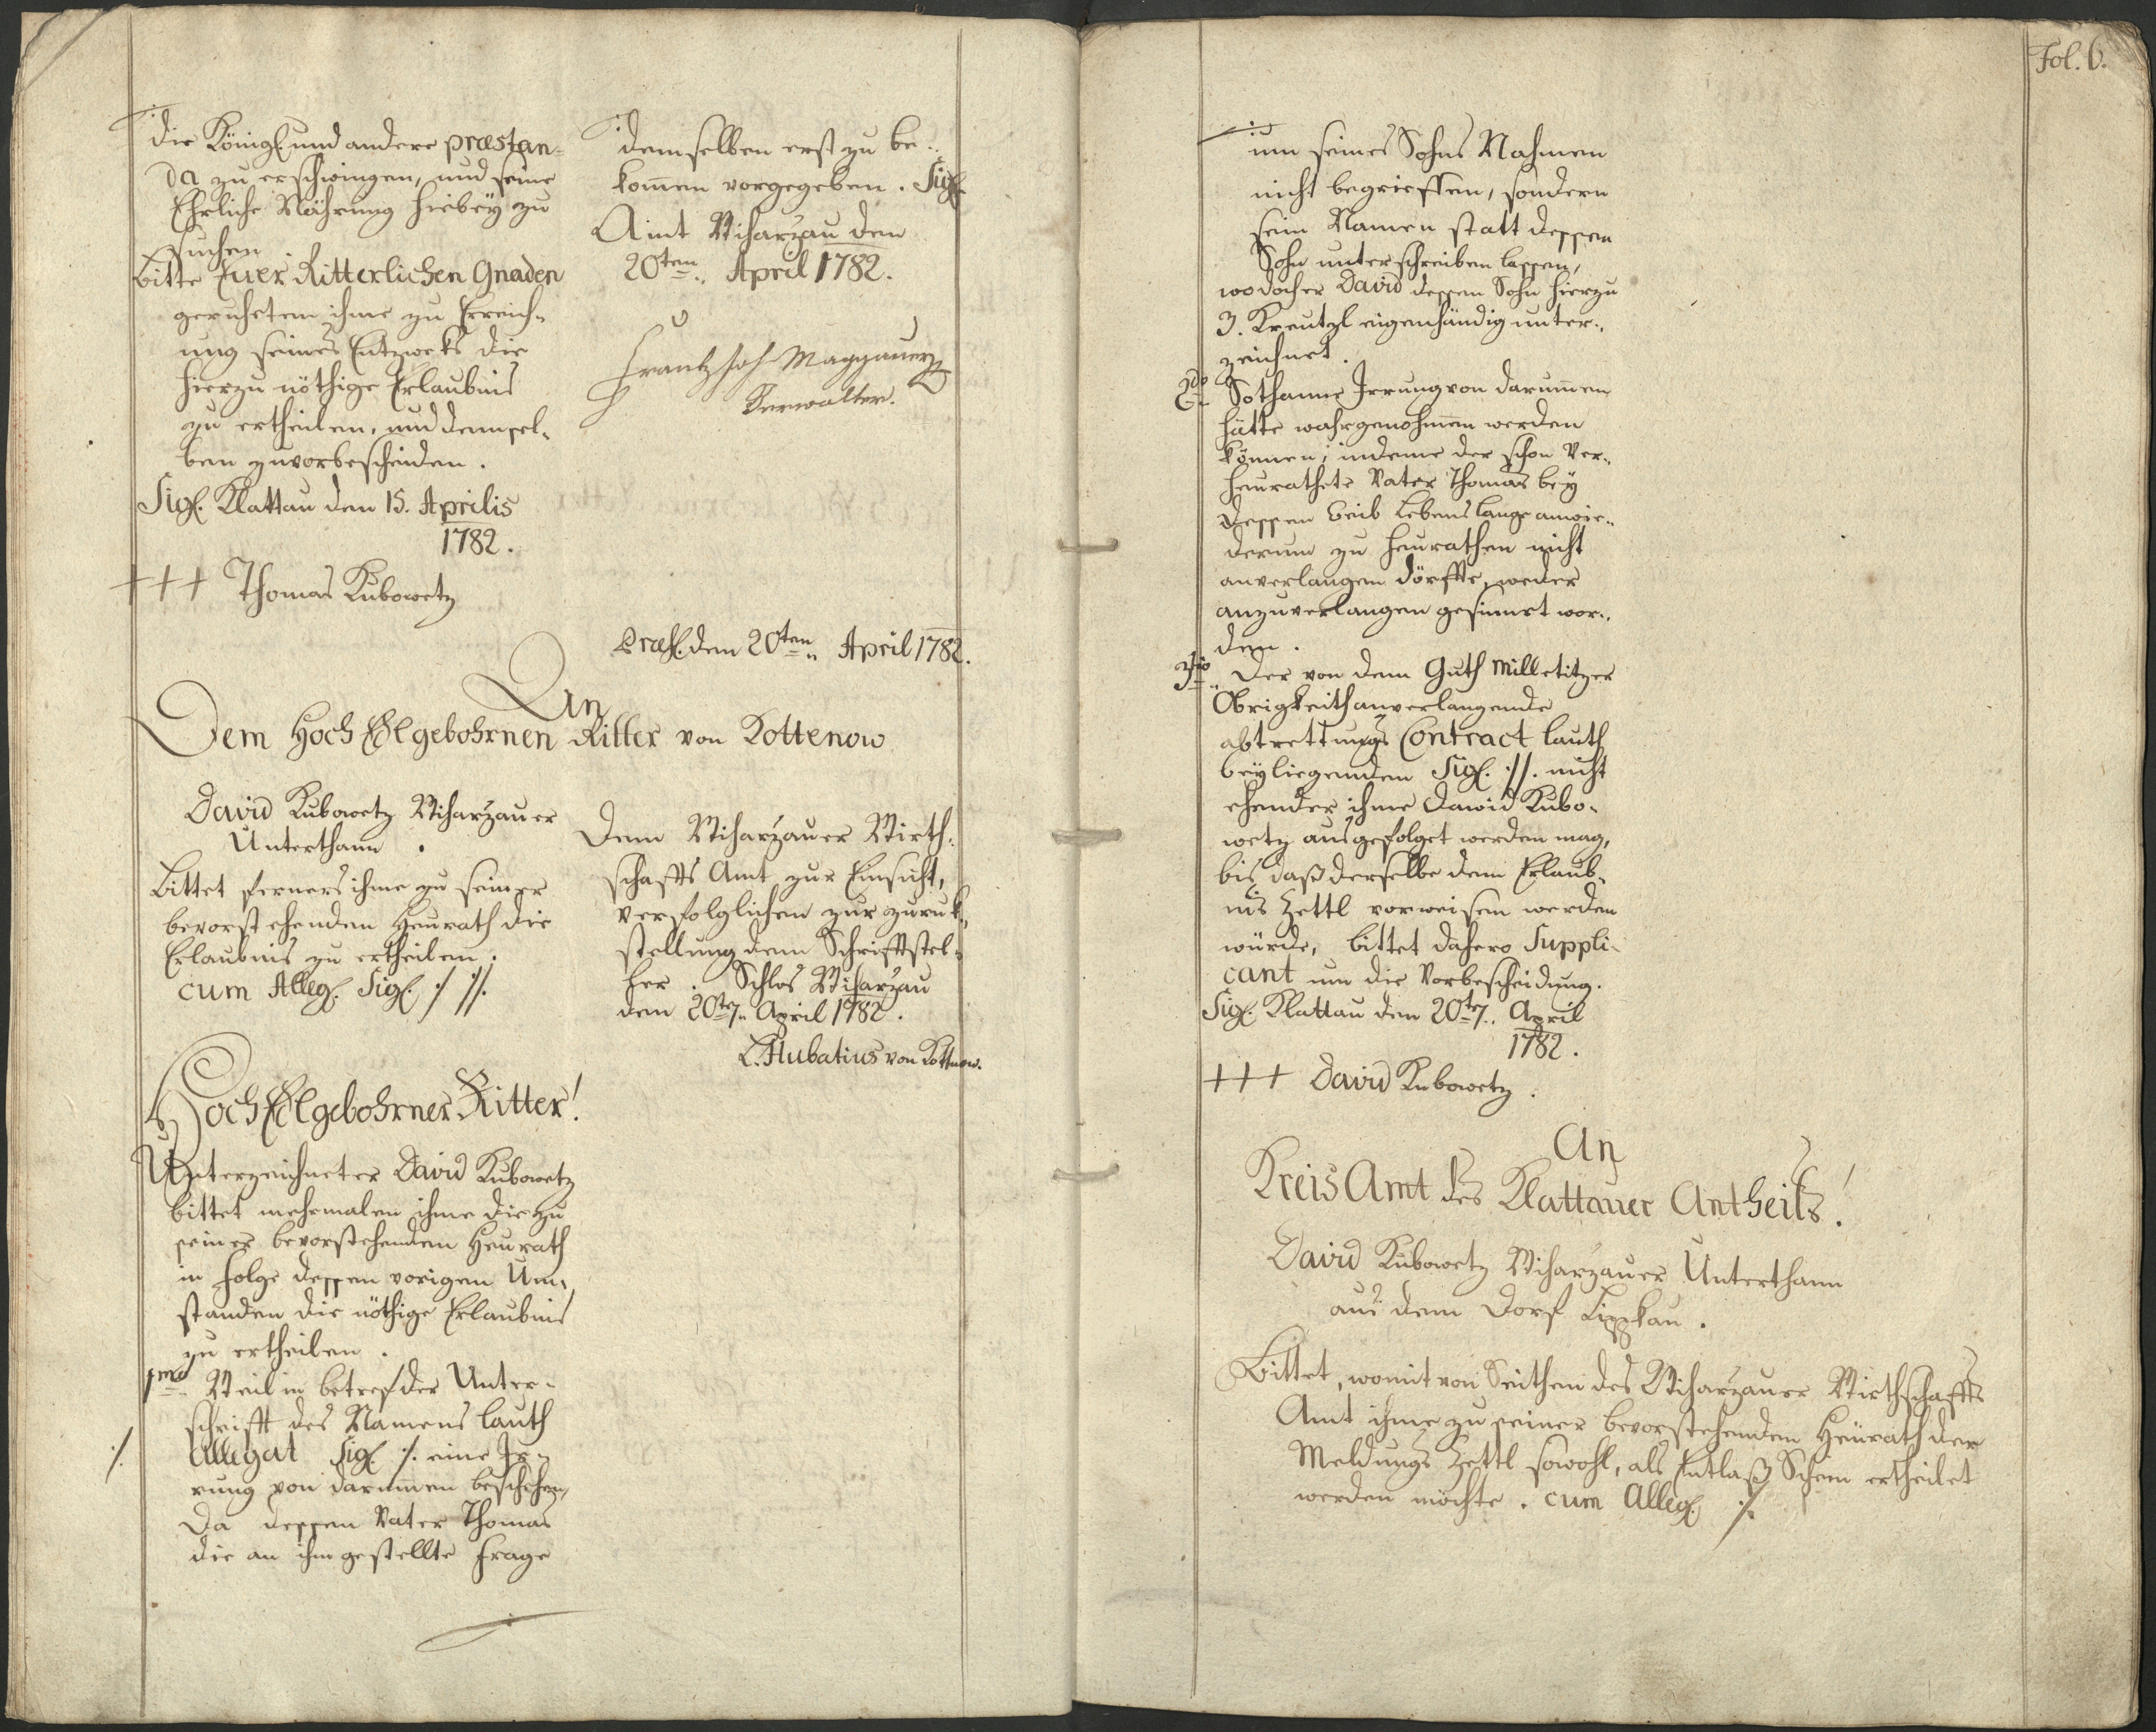 die Königl: und andere præstan-
da zu erschwingen, und seine
Ehrliche Nährung hiebeÿ zu
suchen.
Bitte Euer Ritterlichen Gnaden
geruheten ihme zu Erreich-
ung seines Entzweks die
hierzu nöthige Erlaubnis
zu ertheilen, und demsel-
ben zuvorbescheiden.
Sigl. Klattau den 15. Aprilis
1782.
+++ Thomas Kubowetz
demselben erst zu be-
kom̅en vorgegeben. Sigl.
Amt Wiharzau den
20ten April 1782.
Frantz Joh Maggauer
Verwalter.
Præs. den 20ten April 1782.
An
Dem Hoch Edlgebohrnen Ritter von Kottenow
David Kubowetz Wiharzauer
Unterthann.
Bittet ferners ihme zu seiner
bevorstehenden Heurath die
Erlaubnis zu ertheilen.
cum Alleg. Sigl. ·/. ·//.
Dem Wiharzauer Wirth-
schafts Amt zur Einsicht,
verfolglichen zur zuruk-
stellung dem Schriftstel-
ler. Schlos Wiharzau
den 20t. April 1782.
L. Hubatius von Kottnow.
Hoch Edlgebohrner Ritter!
Unterzeichneter David Kubowetz
bittet mehrmalen ihme die zu
seiner bevorstehenden Heurath
in folge dessen vorigen Um-
standen die nöthige Erlaubnis
zu ertheilen.
1mo Weil in betref der Unter-
schrifft des Namens lauth
·/. Allegat Sigl ·/. eine Ir-
rung von darum̅en beschehen,
da dessen Vater Thomas
die an ihm gestellte Frage
Fol. 6.
um seines Sohns Nahmen
nicht begrieffen, sondern
sein Namen statt dessen
Sohn unterschreiben lassen,
wo doch er David dessen Sohn hierzu
3. Kreutzl eigenhändig unter-
zeichnet.
2do Sothanne Irrung von darum̅en
hätte wahrgenohm̅en werden
können; indeme der schon Ver-
heurathete Vater Thomas beÿ
dessen Weib Lebens lange anwie-
derum zu heurathen nicht
anverlangen dörffte, weder
anzuverlangen gesinnet wor-
den.
3tio Der von dem Guth Milletitzer
Obrigkeith anverlangende
abtrettungs Contract lauth
beÿliegenden Sigl. ·//. nicht
ehender ihme Dawid Kubo-
wetz ausgefolget werden mag,
bis daß derselbe den Erlaub-
nis Zettl vorweisen werden
würde, bittet dahero Suppli-
cant um die Vorbescheidung.
Sigl. Klattau den 20t. April
1782.
+++ David Kubowetz.
An
Kreis Amt des Klattauer Antheils!
David Kubowetz Wiharzauer Unterthann
aus dem Dorf Lippkau.
Bittet, womit von Seithen des Wiharzauer Wirthschaffts
Amt ihme zu seiner bevorstehenden Heürath der
Meldungs Zettl sowohl, als Entlaß Schein ertheilet
werden möchte. cum Alleg. ·/.